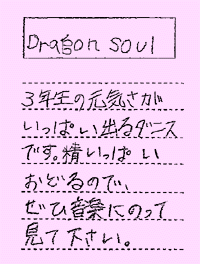 Dragon soul
3年生の元気さが
いっぱい出るダンス
です。精いっぱい
おどるので、
ぜひ音楽にのって
見て下さい。